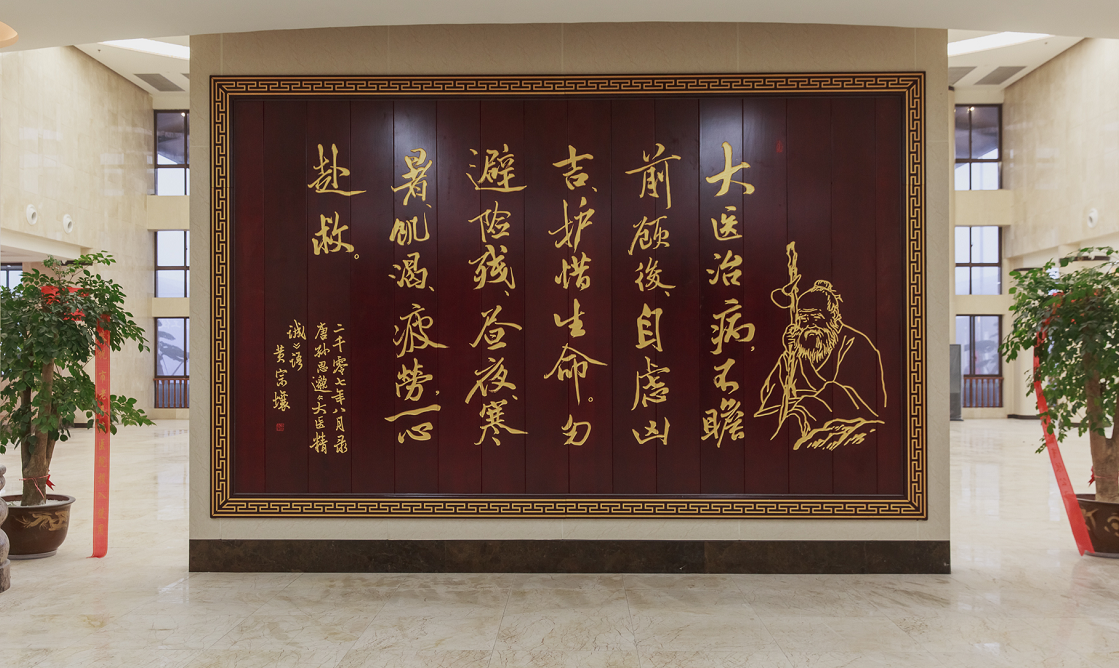 大医治病，不瞻
前顾後、自虑凶
吉、护惜生命。勿
避险 、昼夜、寒
暑、饥渴、疲劳，一心
赴救。
二千零七年八月录
唐孙思邈《大医精
诚》语
黄宗壤